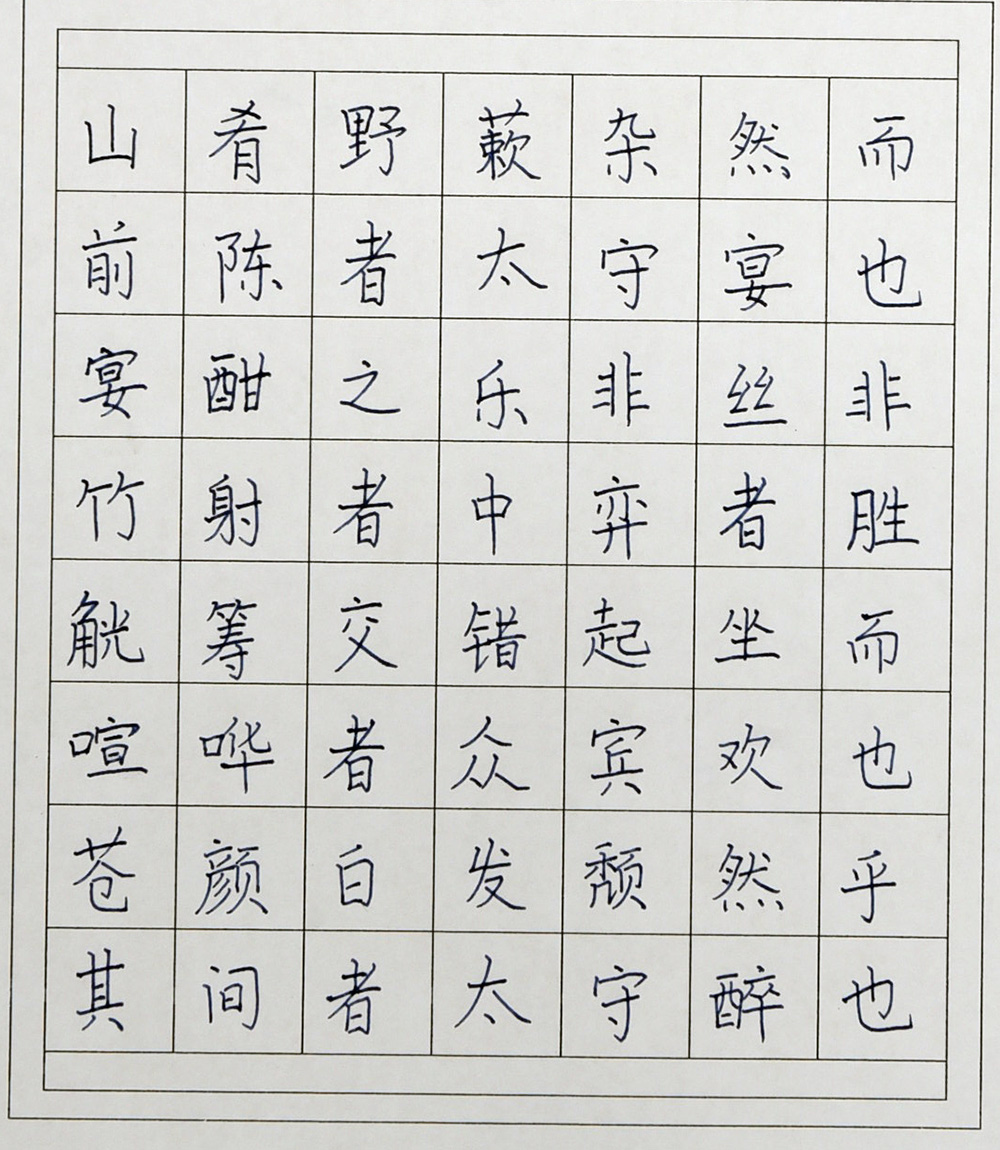 山肴野蔌杂然而
前陈者太守宴也
宴酣之乐非丝非
竹射者中弈者胜
觥筹交错起坐而
喧哗者众宾欢也
苍颜白发颓然乎
其间者太守醉也